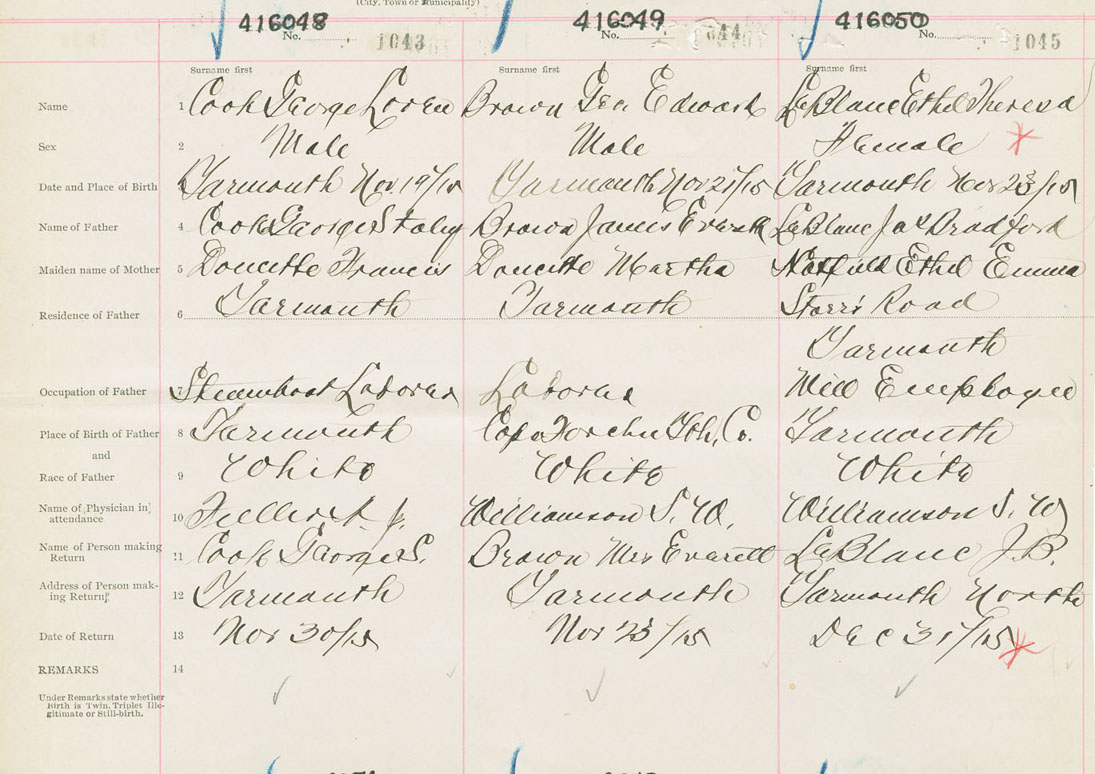 (City, Town or Municipality)
416048 416049 416050
No. 1043 No. 1044 No. 1045
Surname first Surname first Surname first
Name 1 Cook George Loren Brown Geo Edward LeBlanc Ethel Theresa
Sex 2 Male Male Female
Date and Place of Birth Yarmouth Nov 19/15 Yarmouth Nov 21/15 Yarmouth Nov 23/15
Name of Father 4 Cook George Brown James Everett LeBlanc Bradford
Maiden name of Mother 5 Doucette Francis Doucette Martha Hatfield Ethel Emma
Residence of Father 6 Yarmouth Yarmouth Starrs Road
Yarmouth
Occupation of Father 7 Steamboat Laborer Laborer Mill Employee
Place of Birth of Father 8 Yarmouth Yarmouth
and
Race of Father 9 White White White
Name of Physician in attendance 10 J. Williamson S. W. Williamson S. W
Name of Person making Return 11 Cook George S. Brown Mrs Everett LeBlanc J. B.
Address of Person making Return 12 Yarmouth Yarmouth Yarmouth North
Date of Return 13 Nov 30/15 Nov /15 Dec 31/15
REMARKS 14
Under Remarks state whether
Birth is Twin, Triplet Ille-
gitimate or Still-birth.